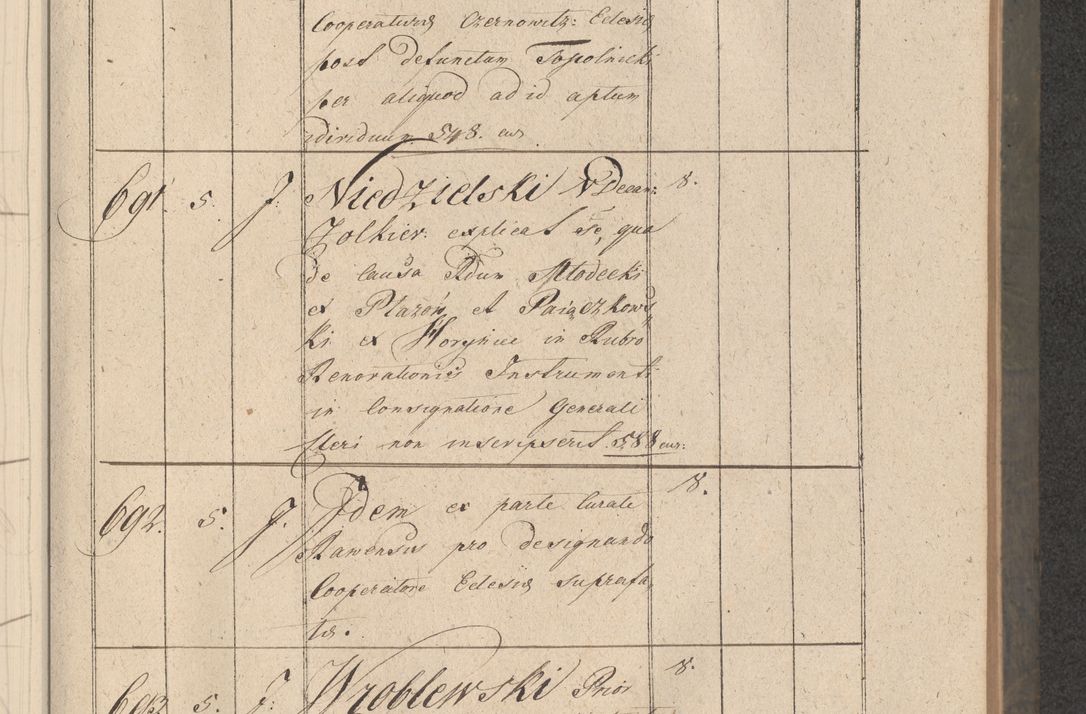 Cooperativus Czernowitz: Eclesiæ
post defunctam Topolnicki
per aliquod ad id aptum
idividuum 548. eur
691. 5. J. Niedzielski V Decan: 8.
Zolkiev: explicat se, qua
de causa Rdum Młodecki
ex Płazow et Paiączkows
ki ex Horyniec in Rubro
Renovationis Instrumenti
in Consignatione Generali
Cleri non inscripserit. 588 eur:
692. 5. J. Idem ex parte Curati 8.
Rawensis pro designando
Cooperatore Eclesiæ suprafa,
tæ.
693 5. J. Wroblewski Prior 8.